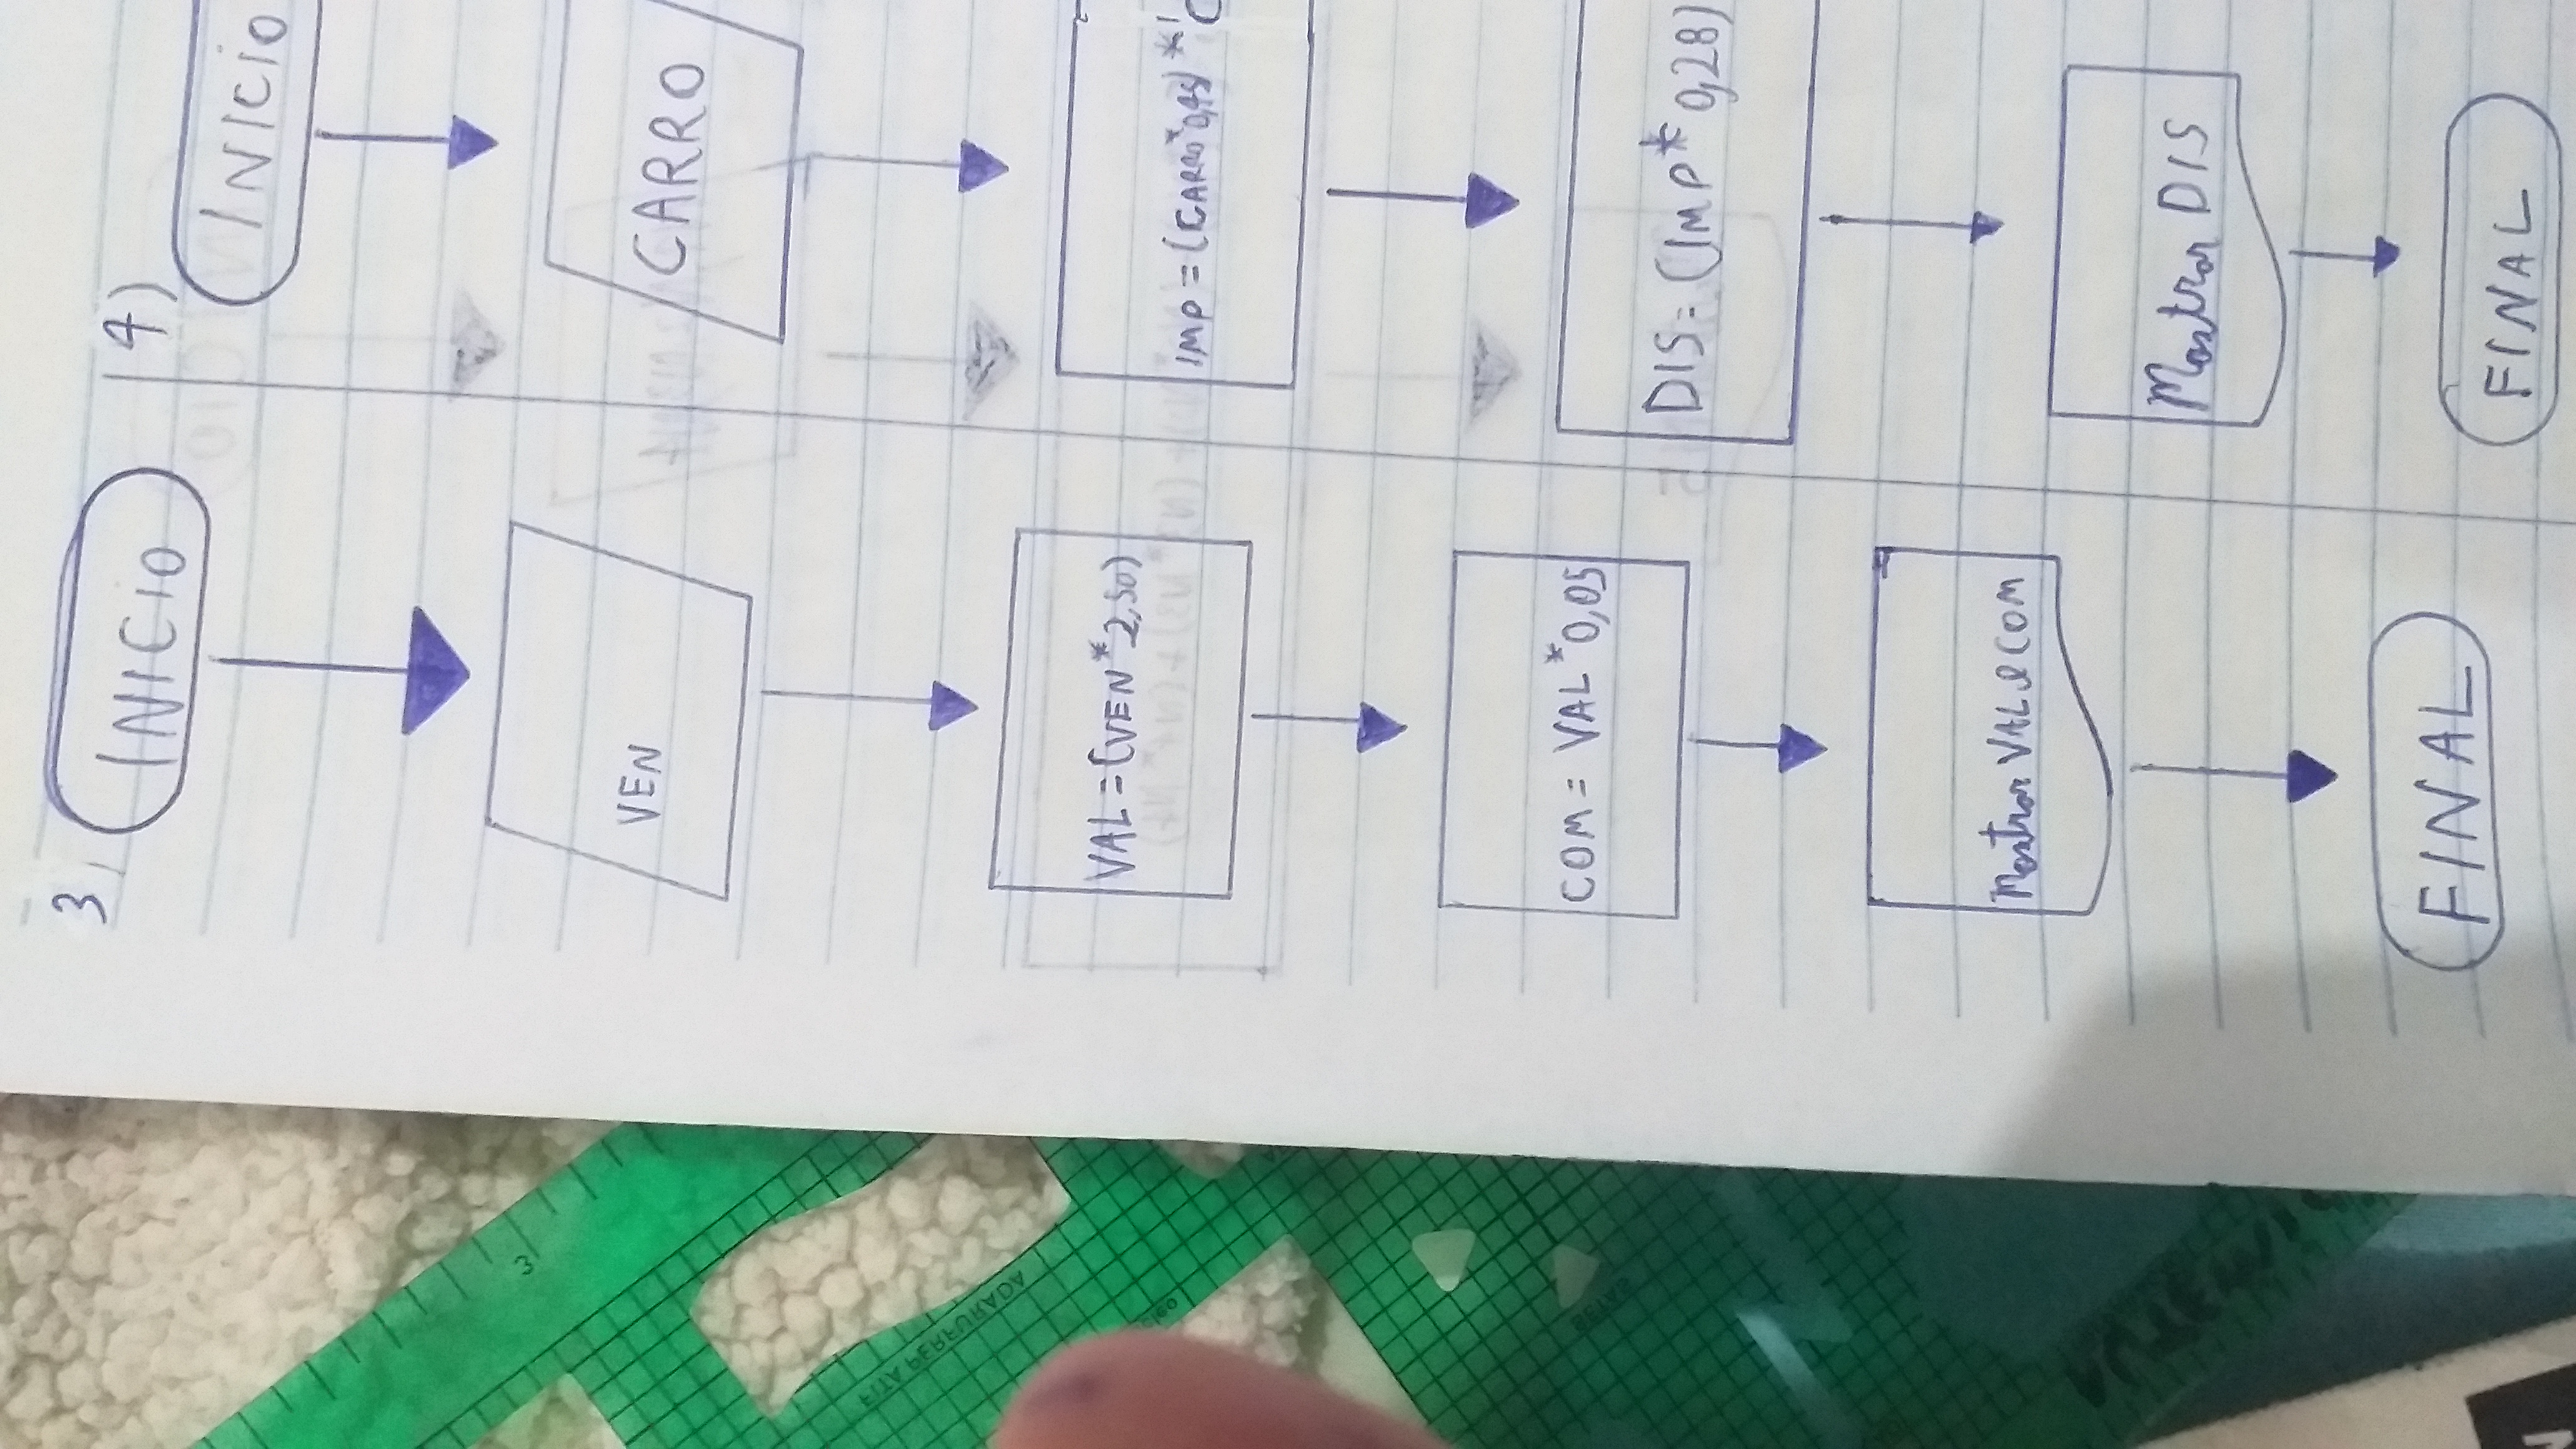 3)
INICIO
VEN
VAL=(VEN*2,50)
COM= VAL*0,05
Mostrar VAL e COM
FINAL
4)
INICIO
CARRO
IMP=(CARRO*0,45)*
DIS=(IMP*0,28)
Mostrar DIS
FINAL
3
FITA PERFURADA